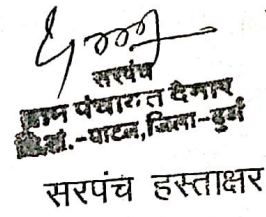 सरपंच
ग्राम पंचायत देमार
वि.खं.-पाटन,जिला-दुर्ग
सरपंच हस्ताक्षर